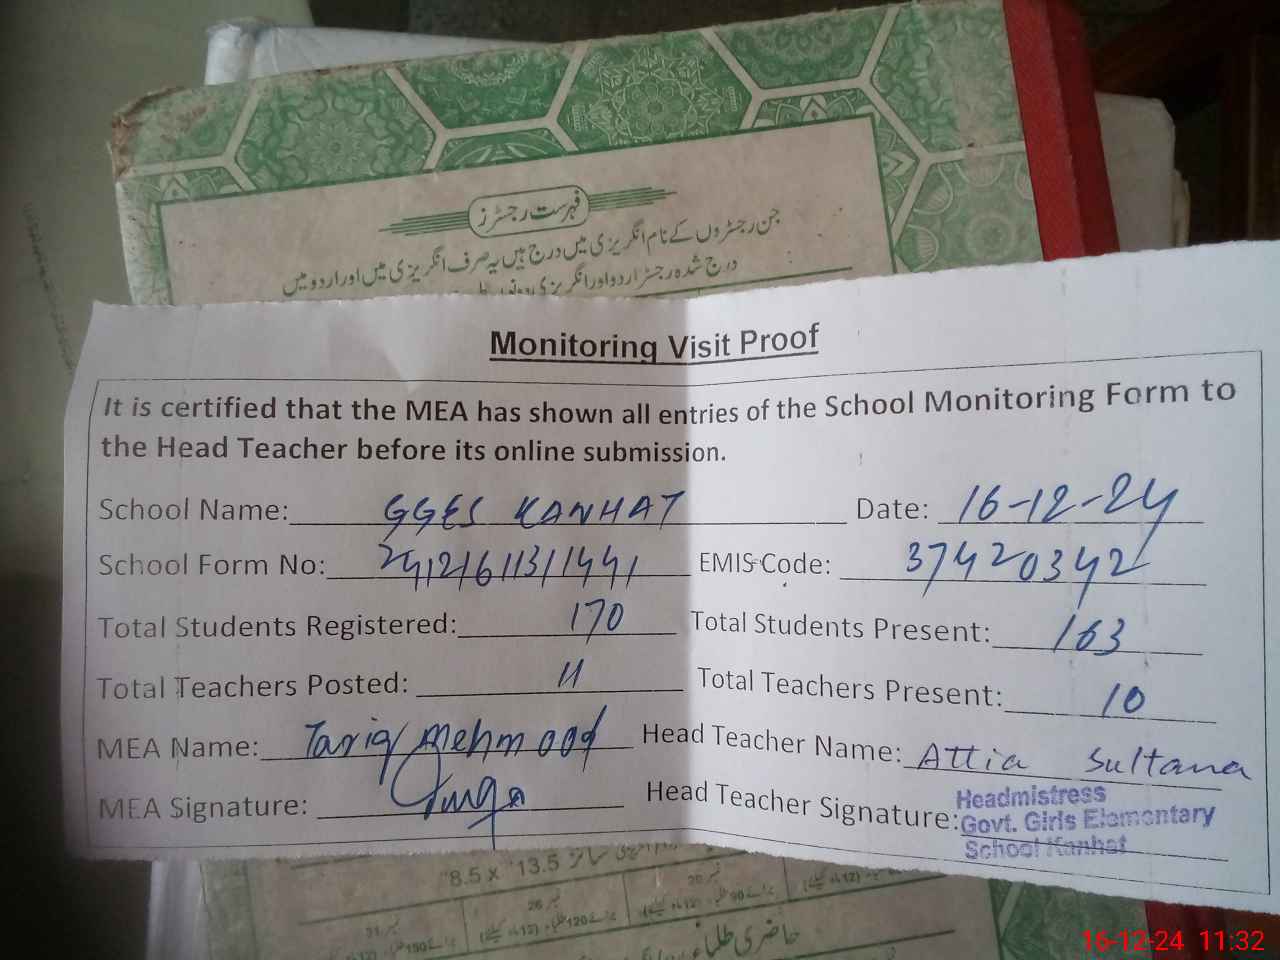 فہرست رجسٹرز
جن رجسٹروں کے نام انگریزی میں درج ہیں یہ صرف انگریزی میں اور اردو میں
درج شدہ رجسٹر اردو اور انگریزی دونوں
Monitoring Visit Proof
It is certified that the MEA has shown all entries of the School Monitoring Form to
the Head Teacher before its online submission.
School Name: GGES KANHAT Date: 16-12-24
School Form No: EMIS Code: 37420342
Total Students Registered: 170 Total Students Present: 163
Total Teachers Posted: 11 Total Teachers Present: 10
MEA Name: Tariq Mehmood Head Teacher Name: Attia Sultana
MEA Signature: Head Teacher Signature:
Headmistress
Govt. Girls Elementary
School Kanhat
8.5 x 13.5
حاضری طلباء
16-12-24 11:32